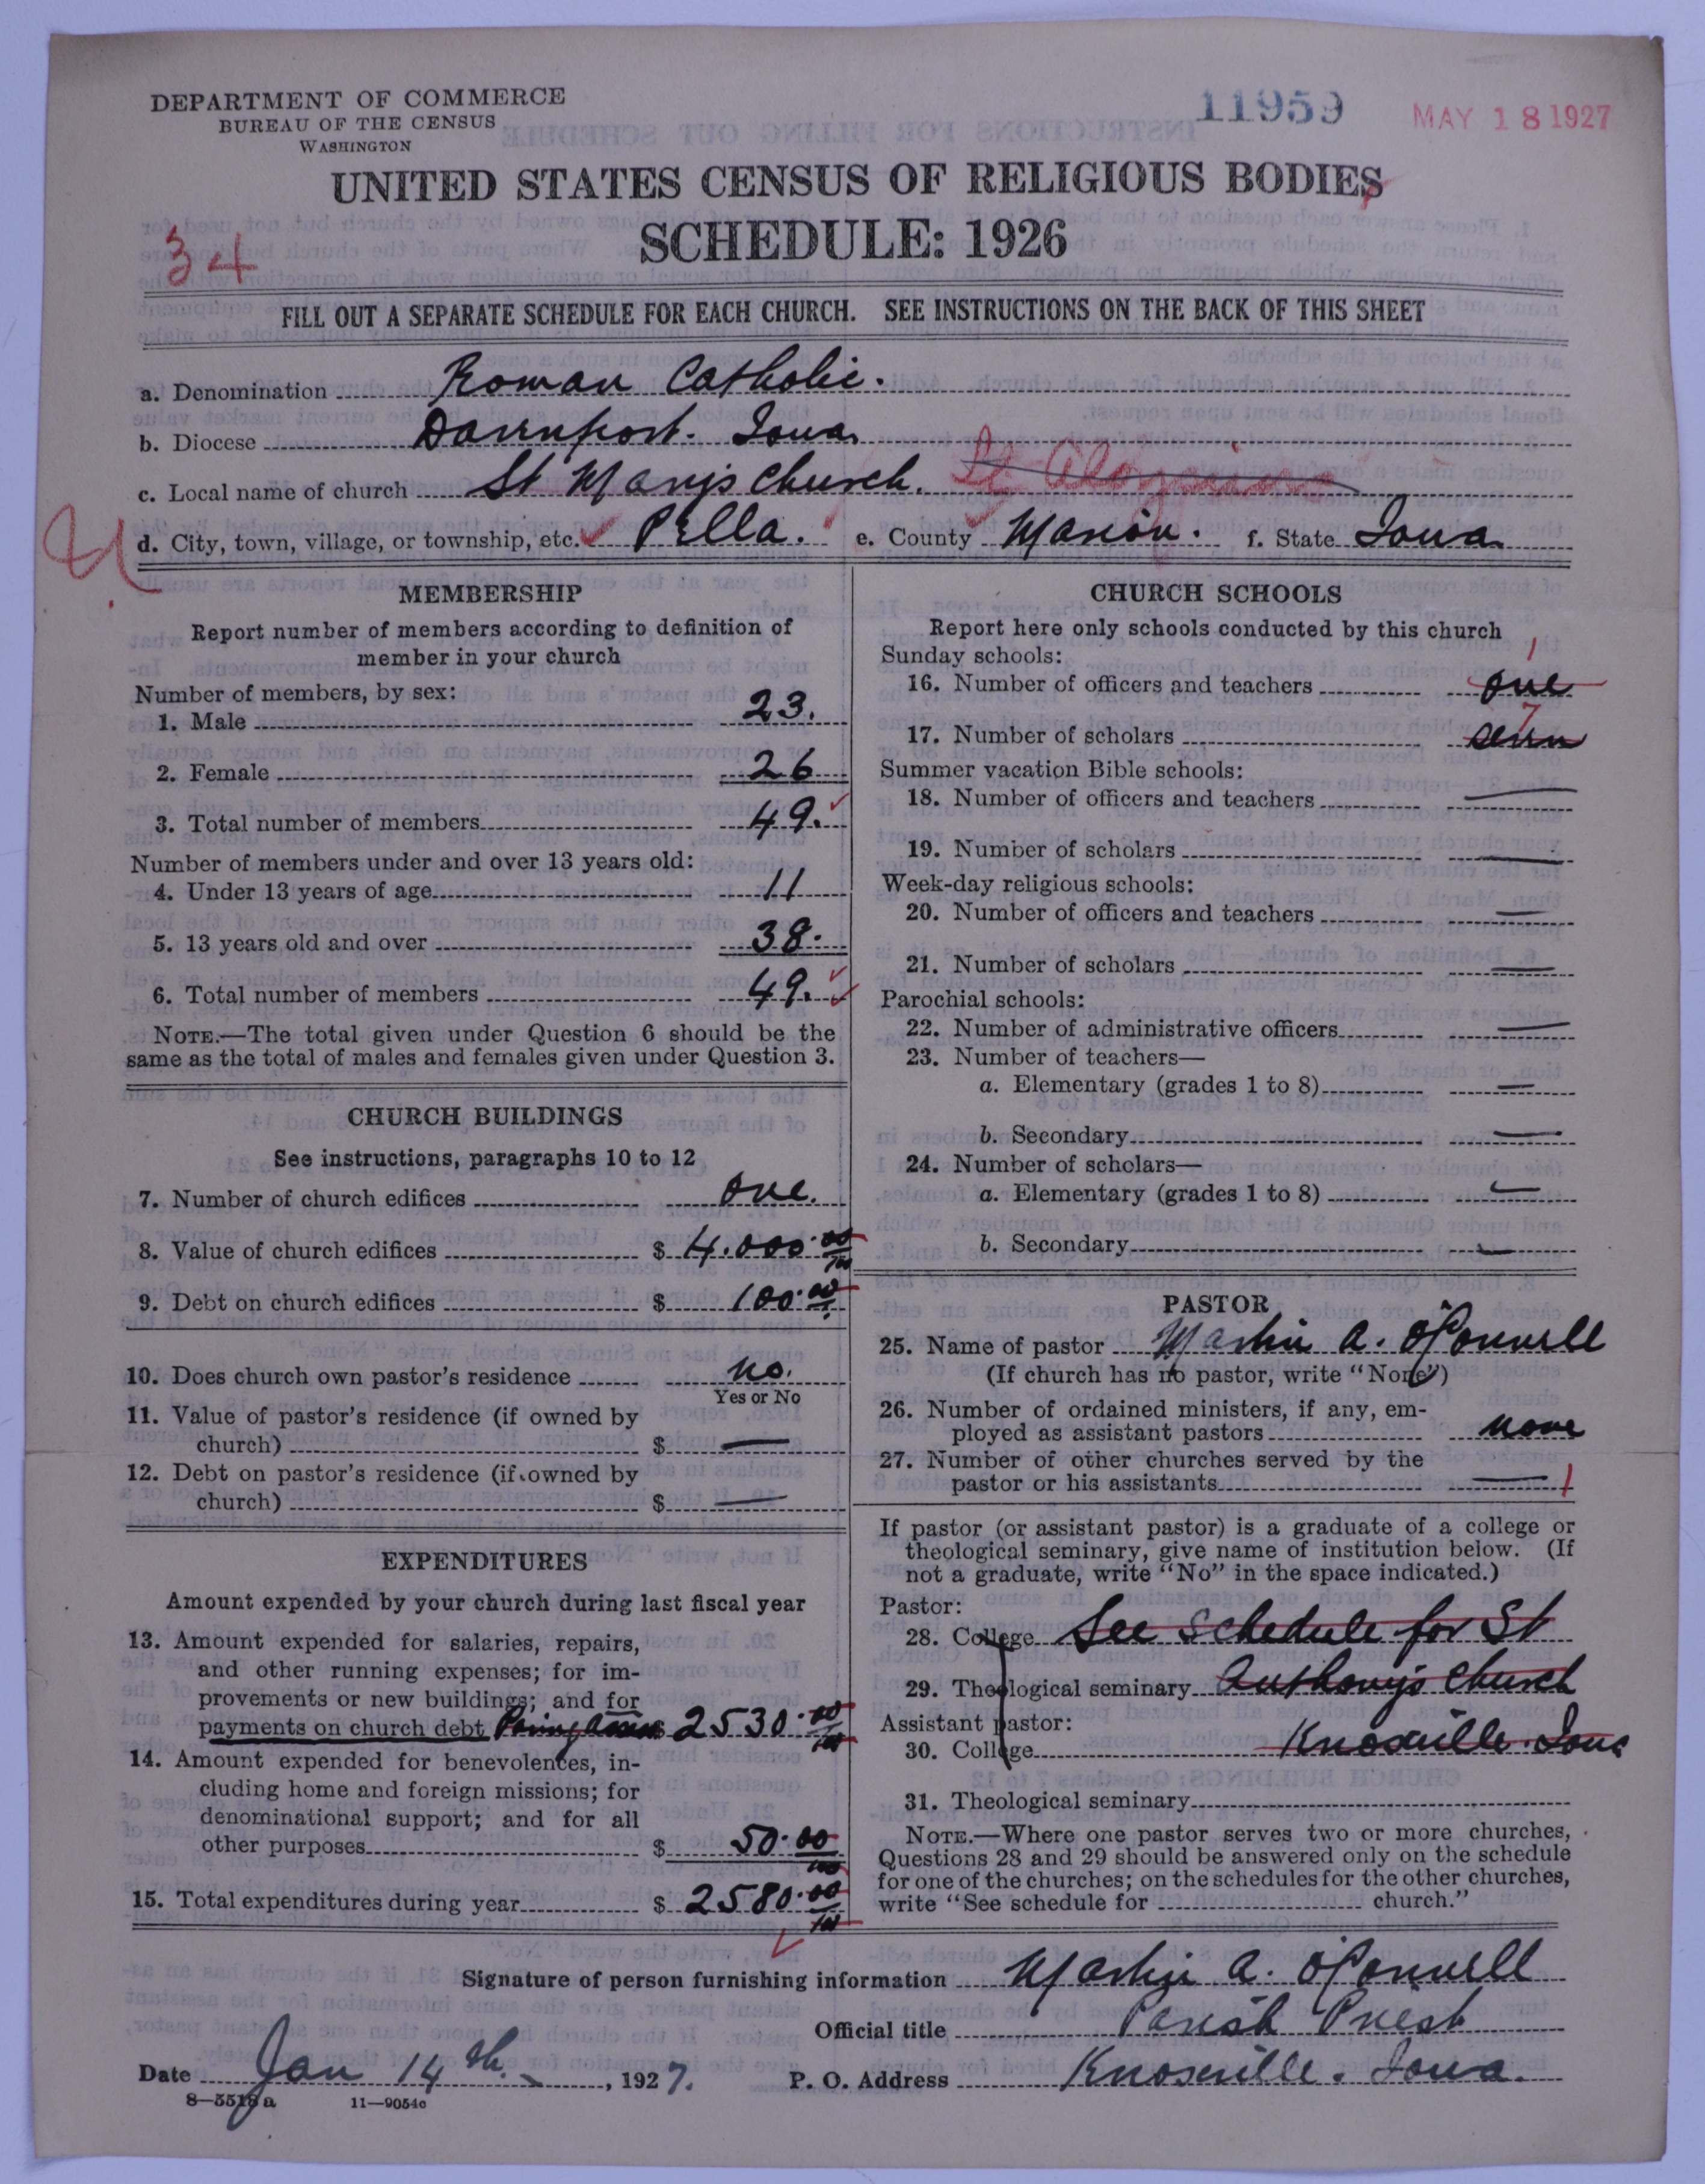 DEPARTMENT OF COMMERCE
BUREAU OF THE CENSUS
WASHINGTON
11959
MAY 18 1927
UNITED STATES CENSUS OF RELIGIOUS BODIES
SCHEDULE: 1926
34
FILL OUT A SEPARATE SCHEDULE FOR EACH CHURCH. SEE INSTRUCTIONS ON THE BACK OF THIS SHEET
a. Denomination Roman Catholic.
b. Diocese Davenport. Iowa.
c. Local name of church St Mary's Church. St Aloysius
d. City, town, village, or township, etc. Pella. e. County Marion. f. State Iowa.
MEMBERSHIP
Report number of members according to definition of
member in your church
Number of members, by sex:
1. Male 23.
2. Female 26
3. Total number of members 49.
Number of members under and over 13 years old:
4. Under 13 years of age 11
5. 13 years old and over 38.
6. Total number of members 49.
NOTE.—The total given under Question 6 should be the
same as the total of males and females given under Question 3.
CHURCH BUILDINGS
See instructions, paragraphs 10 to 12
7. Number of church edifices one.
8. Value of church edifices $ 4.000.00/100
9. Debt on church edifices $ 100.00
10. Does church own pastor's residence no.
Yes or No
11. Value of pastor's residence (if owned by
church) $ —
12. Debt on pastor's residence (if owned by
church) $ —
EXPENDITURES
Amount expended by your church during last fiscal year
13. Amount expended for salaries, repairs,
and other running expenses; for im-
provements or new buildings; and for
payments on church debt $ 2530.00/100
14. Amount expended for benevolences, in-
cluding home and foreign missions; for
denominational support; and for all
other purposes $ 50.00/100
15. Total expenditures during year $ 2580.00/100
CHURCH SCHOOLS
Report here only schools conducted by this church
Sunday schools:
16. Number of officers and teachers one 1
17. Number of scholars seven 7
Summer vacation Bible schools:
18. Number of officers and teachers —
19. Number of scholars —
Week-day religious schools:
20. Number of officers and teachers —
21. Number of scholars —
Parochial schools:
22. Number of administrative officers —
23. Number of teachers—
a. Elementary (grades 1 to 8) —
b. Secondary —
24. Number of scholars—
a. Elementary (grades 1 to 8) —
b. Secondary —
PASTOR
25. Name of pastor Martin A. O'Connell
(If church has no pastor, write "None")
26. Number of ordained ministers, if any, em-
ployed as assistant pastors none
27. Number of other churches served by the
pastor or his assistants — 1
If pastor (or assistant pastor) is a graduate of a college or
theological seminary, give name of institution below. (If
not a graduate, write "No" in the space indicated.)
Pastor:
28. College See Schedule for St
29. Theological seminary Anthony's Church
Assistant pastor:
30. College Knoxville. Iowa
31. Theological seminary
NOTE.—Where one pastor serves two or more churches,
Questions 28 and 29 should be answered only on the schedule
for one of the churches; on the schedules for the other churches,
write "See schedule for church."
Signature of person furnishing information Martin A. O'Connell
Official title Parish Priest
Date Jan 14th, 1927. P. O. Address Knoxville. Iowa.
8—5518 a 11—9054c